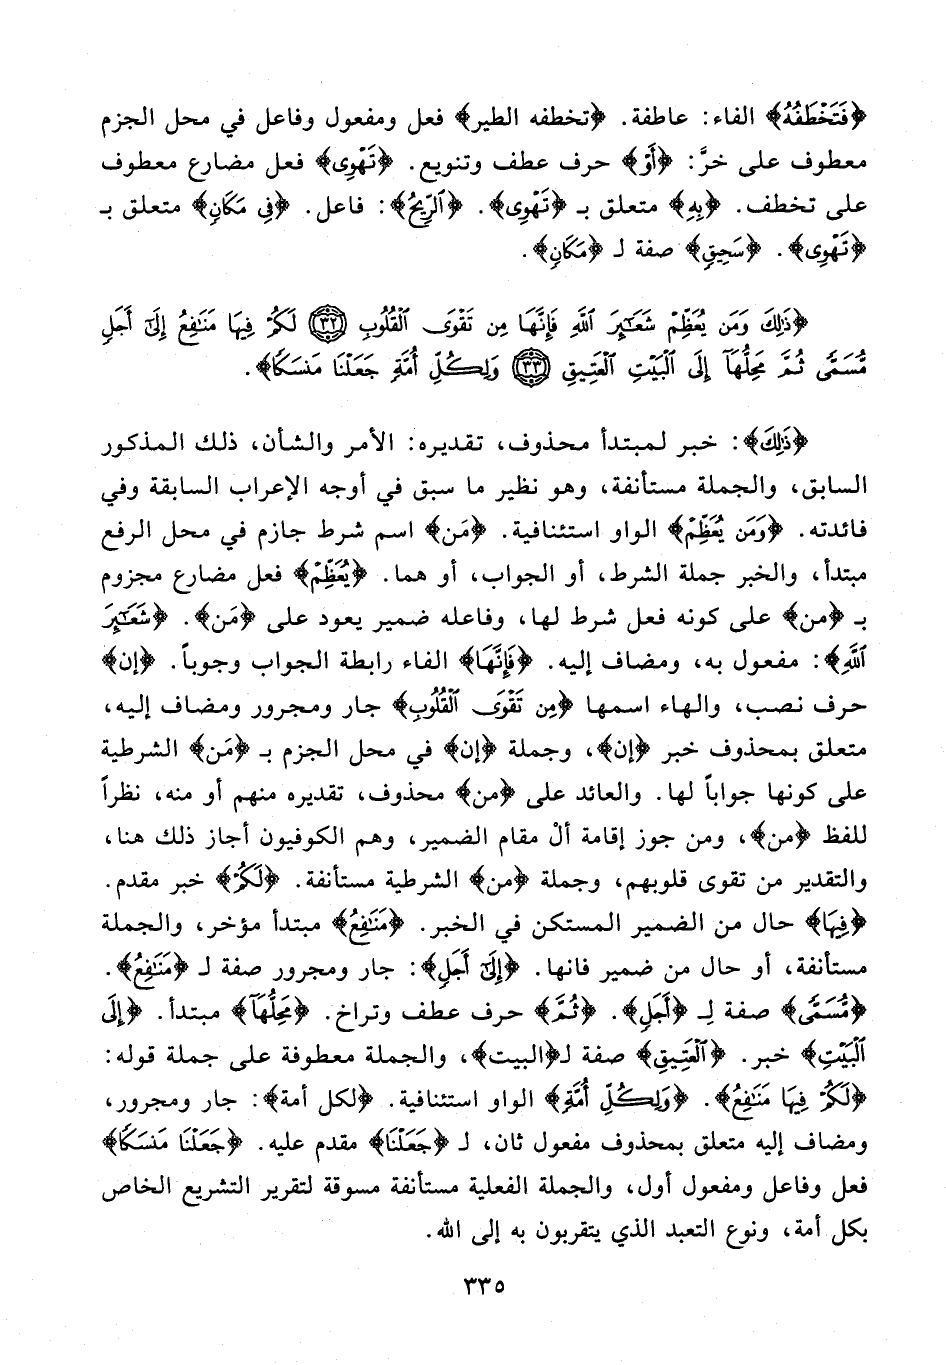 ﴿فَتَخْطَفُهُ﴾ الفاء: عاطفة. ﴿تخطفه الطير﴾ فعل ومفعول وفاعل في محل الجزم
معطوف على خرَّ: ﴿أَوْ﴾ حرف عطف وتنويع. ﴿تَهْوِى﴾ فعل مضارع معطوف
على تخطف. ﴿بِهِ﴾ متعلق بـ ﴿تَهْوِى﴾. ﴿ٱلرِّيحُ﴾: فاعل. ﴿فِى مَكَانٍ﴾ متعلق بـ
﴿تَهْوِى﴾. ﴿سَحِيقٍ﴾ صفة لـ ﴿مَكَانٍ﴾.
﴿ذَٰلِكَ وَمَن يُعَظِّمْ شَعَٰٓئِرَ ٱللَّهِ فَإِنَّهَا مِن تَقْوَى ٱلْقُلُوبِ ﴿٣٢﴾ لَكُمْ فِيهَا مَنَٰفِعُ إِلَىٰٓ أَجَلٍ
مُّسَمًّى ثُمَّ مَحِلُّهَآ إِلَى ٱلْبَيْتِ ٱلْعَتِيقِ ﴿٣٣﴾ وَلِكُلِّ أُمَّةٍ جَعَلْنَا مَنسَكًا﴾.
﴿ذَٰلِكَ﴾: خبر لمبتدأ محذوف، تقديره: الأمر والشأن، ذلك المذكور
السابق، والجملة مستأنفة، وهو نظير ما سبق في أوجه الإعراب السابقة وفي
فائدته. ﴿وَمَن يُعَظِّمْ﴾ الواو استئنافية. ﴿مَن﴾ اسم شرط جازم في محل الرفع
مبتدأ، والخبر جملة الشرط، أو الجواب، أو هما. ﴿يُعَظِّمْ﴾ فعل مضارع مجزوم
بـ ﴿من﴾ على كونه فعل شرط لها، وفاعله ضمير يعود على ﴿مَن﴾. ﴿شَعَٰٓئِرَ
ٱللَّهِ﴾: مفعول به، ومضاف إليه. ﴿فَإِنَّهَا﴾ الفاء رابطة الجواب وجوباً. ﴿إن﴾
حرف نصب، والهاء اسمها ﴿مِن تَقْوَى ٱلْقُلُوبِ﴾ جار ومجرور ومضاف إليه،
متعلق بمحذوف خبر ﴿إن﴾، وجملة ﴿إن﴾ في محل الجزم بـ ﴿مَن﴾ الشرطية
على كونها جواباً لها. والعائد على ﴿من﴾ محذوف، تقديره منهم أو منه، نظراً
للفظ ﴿من﴾، ومن جوز إقامة ألْ مقام الضمير، وهم الكوفيون أجاز ذلك هنا،
والتقدير من تقوى قلوبهم، وجملة ﴿من﴾ الشرطية مستأنفة. ﴿لَكُمْ﴾ خبر مقدم.
﴿فِيهَا﴾ حال من الضمير المستكن في الخبر. ﴿مَنَٰفِعُ﴾ مبتدأ مؤخر، والجملة
مستأنفة، أو حال من ضمير فانها. ﴿إِلَىٰٓ أَجَلٍ﴾: جار ومجرور صفة لـ ﴿مَنَٰفِعُ﴾.
﴿مُّسَمًّى﴾ صفة لِـ ﴿أَجَلٍ﴾. ﴿ثُمَّ﴾ حرف عطف وتراخ. ﴿مَحِلُّهَآ﴾ مبتدأ. ﴿إِلَى
ٱلْبَيْتِ﴾ خبر. ﴿ٱلْعَتِيقِ﴾ صفة لـ﴿البيت﴾، والجملة معطوفة على جملة قوله:
﴿لَكُمْ فِيهَا مَنَٰفِعُ﴾. ﴿وَلِكُلِّ أُمَّةٍ﴾ الواو استئنافية. ﴿لكل أمة﴾: جار ومجرور،
ومضاف إليه متعلق بمحذوف مفعول ثان، لـ ﴿جَعَلْنَا﴾ مقدم عليه. ﴿جَعَلْنَا مَنسَكًا﴾
فعل وفاعل ومفعول أول، والجملة الفعلية مستأنفة مسوقة لتقرير التشريع الخاص
بكل أمة، ونوع التعبد الذي يتقربون به إلى الله.
٣٣٥